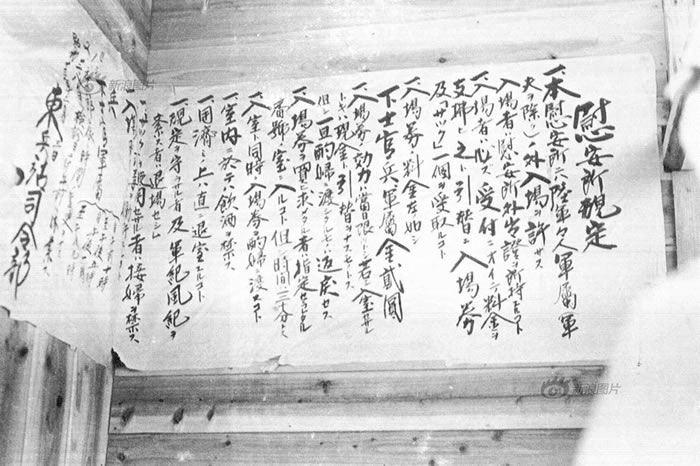 慰安所規定
一、本慰安所ニハ陸軍々人軍属(軍
夫ヲ除ク)ノ外入場ヲ許サス
入場者ハ慰安所外出證ヲ所持スルコト
一、入場者ハ必ス受付ニオイテ料金ヲ
支拂ヒ之ト引替ニ入場券
及「サック」一個ヲ受取ルコト
一、入場券ノ料金左ノ如シ
下士官、兵、軍属金貳圓
一、入場券ノ効力ハ當日限トシ若シ入室セサル
トキハ現金ト引替ヲナスモノトス
但シ一旦酌婦ニ渡シタルモノハ返戻セス
一、入場券ヲ買ヒ求メタル者ハ指定セラレタル
番號ノ室ニ入ルコト但シ時間ハ三十分トス
一、入室ト同時ニ入場券ヲ酌婦ニ渡スコト
一、室内ニ於テハ飲酒ヲ禁ス
一、用済ミノ上ハ直ニ退室スルコト
一、規定ヲ守ラサル者及軍紀風紀ヲ
紊ス者ハ退場セシム
一、サックヲ使用セサル者ハ接婦ヲ禁ス
東兵站司令部
新浪图片
新浪图片